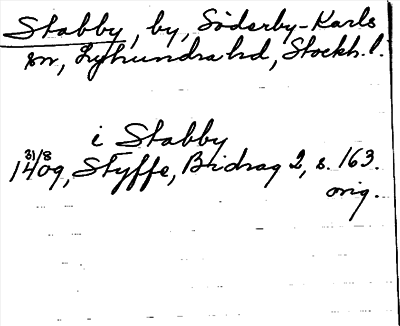 Stabby, by, Söderby-Karls
sn, Lyhundra hd, Stockh. l.
i Stabby
31/8
1409, Styffe, Bidrag 2, s. 163.
orig.